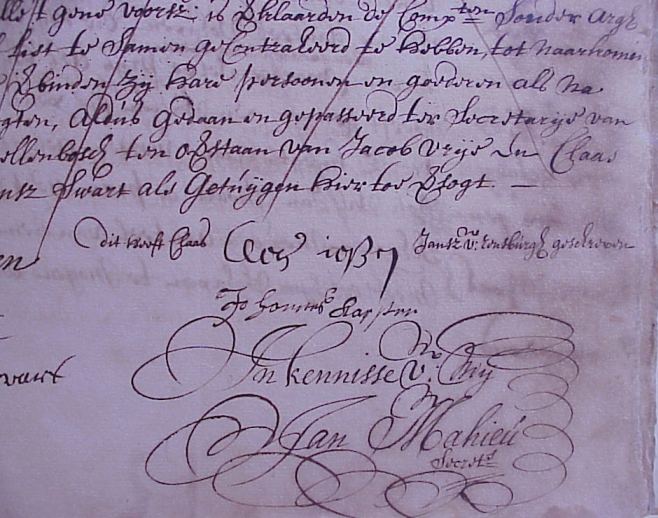 allest gene voorsz: is Eklaarden de Compten sonder argh
list te samen geContrakeerd te hebben, tot naarkomen
Ebinden zij hare persoonen en goederen als na
gten, Aldús Gedaan en gepasseerd ter Secretarije van
ellenbosch ten oEstaan van Jacob Vrije En Claas
ntsz Swart als Getúijgen hier toe Esogt. —
dit heeft Claas
Jantsz v: rensburgh geschreven
en
Johannes
wart
In kennisse v: Mij
Jan Mahieú
Secrets